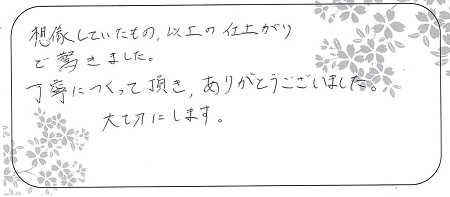 想像していたもの，以上の仕上がり
で驚きました。
丁寧につくって頂き，ありがとうございました。
大切にします。